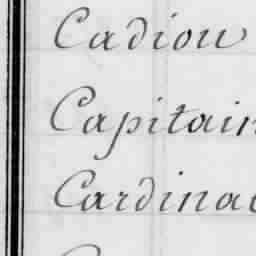 Cadiou
Capitain
Cardina